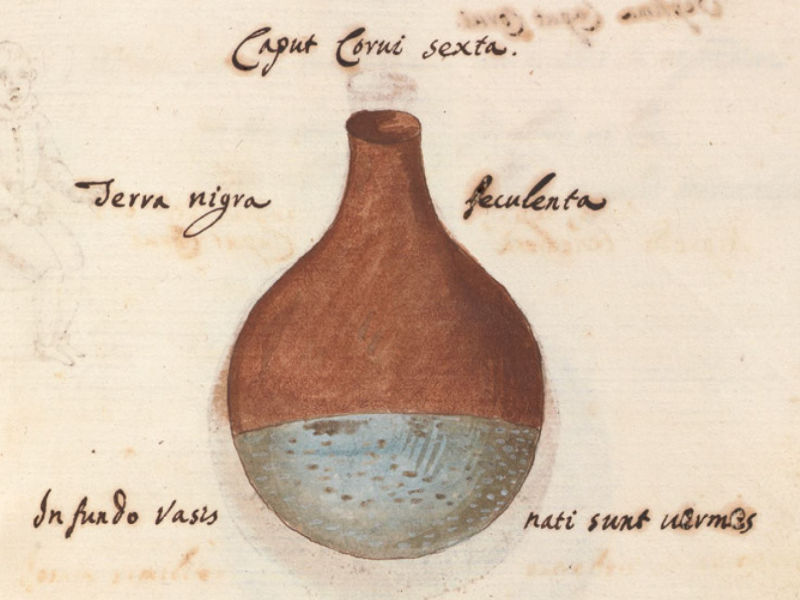 Caput Corui sexta.
Terra nigra feculenta
In fundo Vasis nati sunt uermes